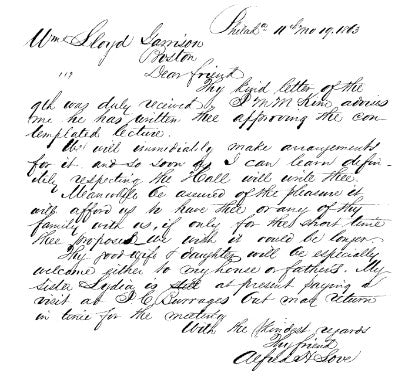 Philada 11th Mo 19. 1863
Wm Lloyd Garrison
Boston
Dear friend
Thy kind letter of the
9th was duly received & J M McKim advises
me he has written thee approving the con-
templated lecture.
We will immediately make arrangements
for it and so soon as I can learn defin-
itely respecting the Hall will write thee.
Meanwhile be assured of the pleasure it
will afford us to have thee or any of thy
family with us, if only for the short time
thee proposed, we wish it could be longer.
Thy good wife & daughter will be especially
welcome either to my house or father's. My
sister Lydia is at present paying a
visit at Burrages but may return
in time for the meeting
With the kindest regards
Thy friend
Alfred H Love